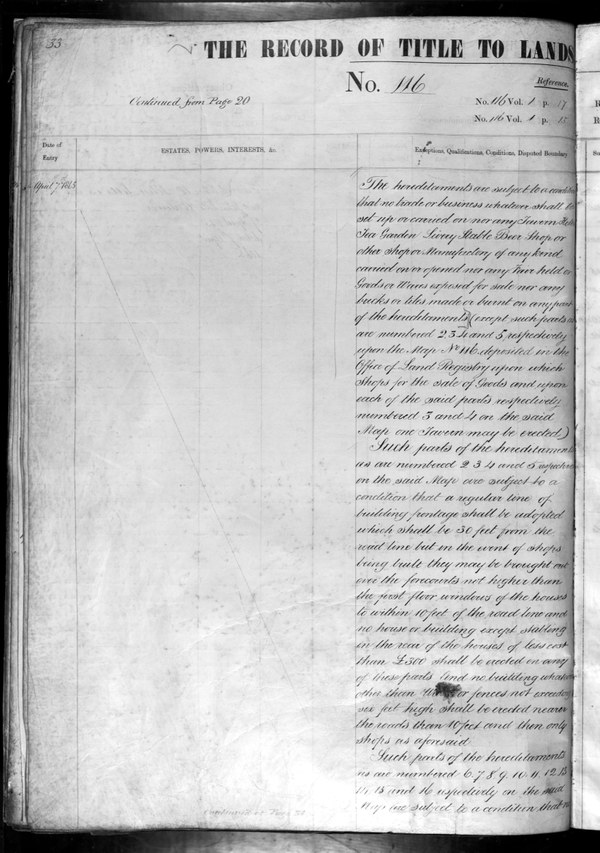 33
THE RECORD OF TITLE TO LANDS
No. 116
Reference.
Continued from Page 20
No. 116 Vol. 1 p. 17
No. 116 Vol. 1 p. 15
Date of
Entry
ESTATES, POWERS, INTERESTS, &c.
Exceptions, Qualifications, Conditions, Disputed Boundary
April 7th 1865
The hereditaments are subject to a
that no trade or business whatever shall be
set up or carried on nor any Tavern
Tea Garden Livery Stable Beer Shop or
other shop or Manufactory of any kind
carried on or opened nor any Fair held or
Goods or Wares exposed for sale nor any
bricks or tiles made or burnt on any part
of the hereditaments (except such parts as
are numbered 2 3 4 and 5 respectively
upon the Map No 116 deposited in the
Office of Land Registry upon which
Shops for the sale of Goods and upon
each of the said parts respectively
numbered 3 and 4 on the said
Map one Tavern may be erected)
Such parts of the hereditaments
as are numbered 2 3 4 and 5 respectively
on the said Map are subject to a
condition that a regular line of
building frontage shall be adopted
which shall be 30 feet from the
road line but in the event of shops
being built they may be brought out
over the forecourts not higher than
the first floor windows of the houses
to within 10 feet of the road line and
no house or building except stabling
in the rear of the houses of less cost
than £300 shall be erected on any
of these parts And no building whatsoever
other than or fences not exceeding
six feet high shall be erected nearer
the roads than 10 feet and then only
shops as aforesaid
Such parts of the hereditaments
as are numbered 6. 7. 8. 9. 10. 11. 12. 13
14. 15 and 16 respectively on the said
Map are subject to a condition that no
continued at Page